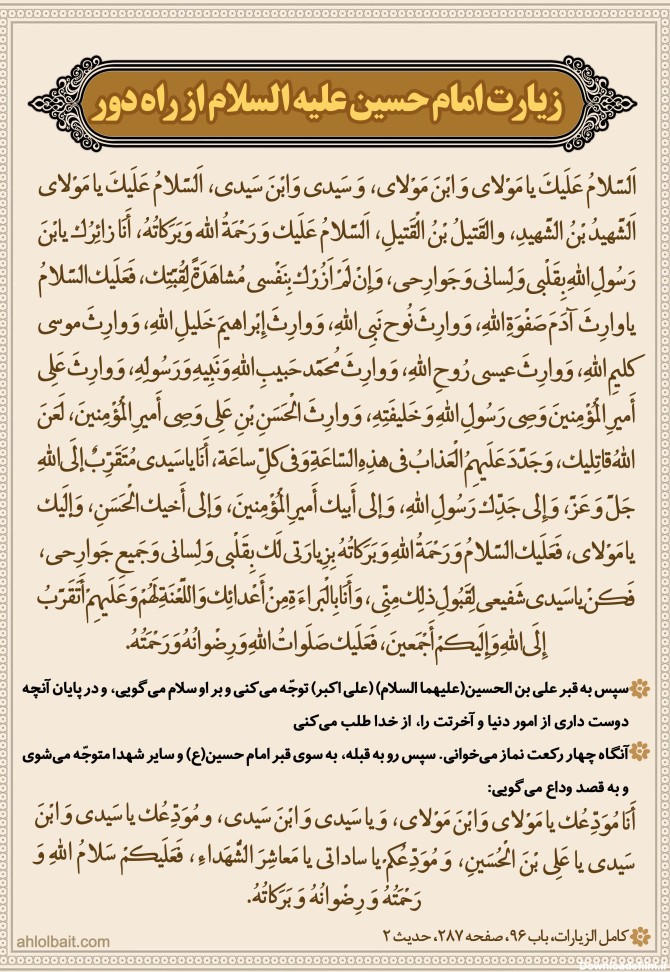 زیارت امام حسین علیه السلام از راه دور
اَلسّلامُ عَلَيكَ يا مَوْلاى وَ ابْنَ مَوْلاى، وَ سَيدى وَ ابْنَ سَيدى، اَلسّلامُ عَلَيكَ يا مَوْلاى
الشّهيدُ بْنُ الشّهيدِ، والقَتيلُ بْنُ الْقَتيلِ، اَلسّلامُ عَلَيكَ وَ رَحْمَةُ اللهِ وَ بَرَكاتُهُ، أَنَا زائِرُك يابْنَ
رَسُولِ اللهِ بِقَلْبى وَ لِسانى وَ جَوارِحى، وَ إِنْ لَمْ أَزُرْك بِنَفْسى مُشاهَدَةً لِقُبّتِك، فَعَلَيك السّلامُ
يا وارِثَ آدَمَ صَفْوَةِ اللهِ، وَ وارِثَ نُوح نَبِى اللهِ، وَ وارِثَ إِبْراهيمَ خَليلِ اللهِ، وَ وارِثَ موسى
كليمِ اللهِ، وَ وارِثَ عيسى رُوحِ اللهِ، وَ وارِثَ مُحَمّد حَبيبِ اللهِ وَ نَبِيهِ وَ رَسُولِهِ، وَ وارِثَ عَلِى
أَميرِ الْمُؤْمِنينَ وَصِى رَسُولِ اللهِ وَ خَليفَتِهِ، وَ وارِثَ الْحَسَنِ بْنِ عَلِى وَصِى أَميرِ الْمُؤْمِنينَ، لَعَنَ
اللهُ قاتِليك، وَ جَدّدَ عَلَيهِمُ الْعَذابَ فى هذِهِ السّاعَةِ وَ فى كلّ ساعَة، أَنَا يا سَيدى مُتَقَرّبٌ إِلَى اللهِ
جَلّ وَ عَزّ، وَ إِلى جَدّك رَسُولِ اللهِ، وَ إِلى أَبيك أَميرِ الْمُؤْمِنينَ، وَ إِلى أَخيك الْحَسَنِ، وَ إِلَيك
يا مَوْلاى، فَعَلَيك السّلامُ وَ رَحْمَةُ اللهِ وَ بَرَكاتُهُ بِزِيارَتى لَك بِقَلْبى وَ لِسانى وَ جَميعِ جَوارِحى،
فَكنْ يا سَيدى شَفيعى لِقَبُولِ ذلِك مِنّى، وَ أَنَا بِالْبَراءَةِ مِنْ أَعْدائِك وَ اللّعْنَةِ لَهُمْ وَ عَلَيهِمْ أَتَقَرّبُ
إِلَى اللهِ وَ إِلَيكمْ أَجْمَعينَ، فَعَلَيك صَلَواتُ اللهِ وَ رِضْوانُهُ وَ رَحْمَتُهُ.
سپس به قبر علی بن الحسین(علیهما السلام) (علی اکبر) توجّه می‌کنی و بر او سلام می‌گویی، و در پایان آنچه
دوست داری از امور دنیا و آخرتت را، از خدا طلب می‌کنی
آنگاه چهار رکعت نماز می‌خوانی. سپس رو به قبله، به سوی قبر امام حسین(ع) و سایر شهدا متوجّه می‌شوی
و به قصد وداع می‌گویی:
أَنَا مُوَدِّعُك يا مَوْلاى وَ ابْنَ مَوْلاى، وَ يا سَيدى وَ ابْنَ سَيدى، و مُوَدِّعُك يا سَيدى وَ ابْنَ
سَيدى يا عَلِى بْنَ الْحُسَينِ، وَ مُوَدِّعُكمْ يا ساداتى يا مَعاشِرَ الشُّهَداءِ، فَعَلَيكمْ سَلامُ اللهِ وَ
رَحْمَتُهُ وَ رِضْوانُهُ وَ بَرَكاتُهُ.
کامل الزیارات، باب ۹۶، صفحه ۲۸۷، حدیث ۲
ahlolbait.com